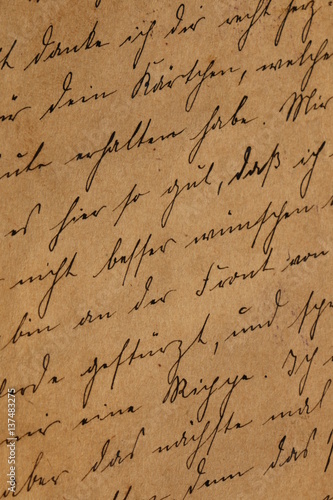 t danke ich dir recht herz
ür dein Kärtchen, welche
eute erhalten habe. Mir
es hier so gut, daß ich
nicht besser wünschen
bin an der Front von
erde gestürzt, und
mir eine Rippe. Ich
aber das nächste mal
denn das